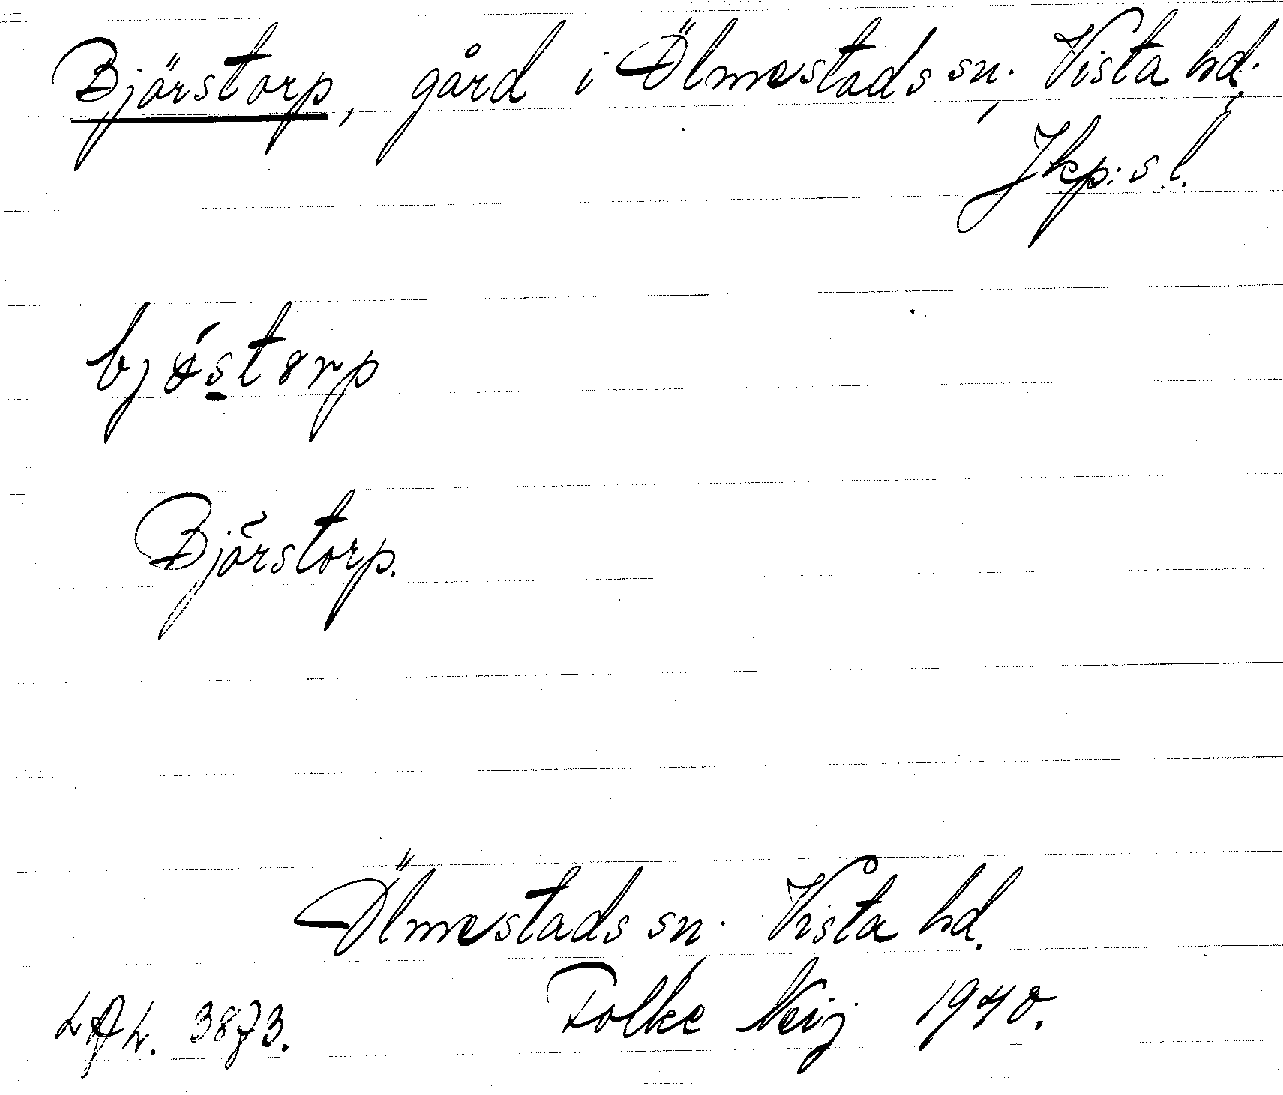 Björstorp, gård i Ölmestads sn, Vista hd;
Jkp:s l.
bjǿstorp
Björstorp.
Ölmestads sn. Vista hd.
Folke Neij 1940.
LAL. 3873.